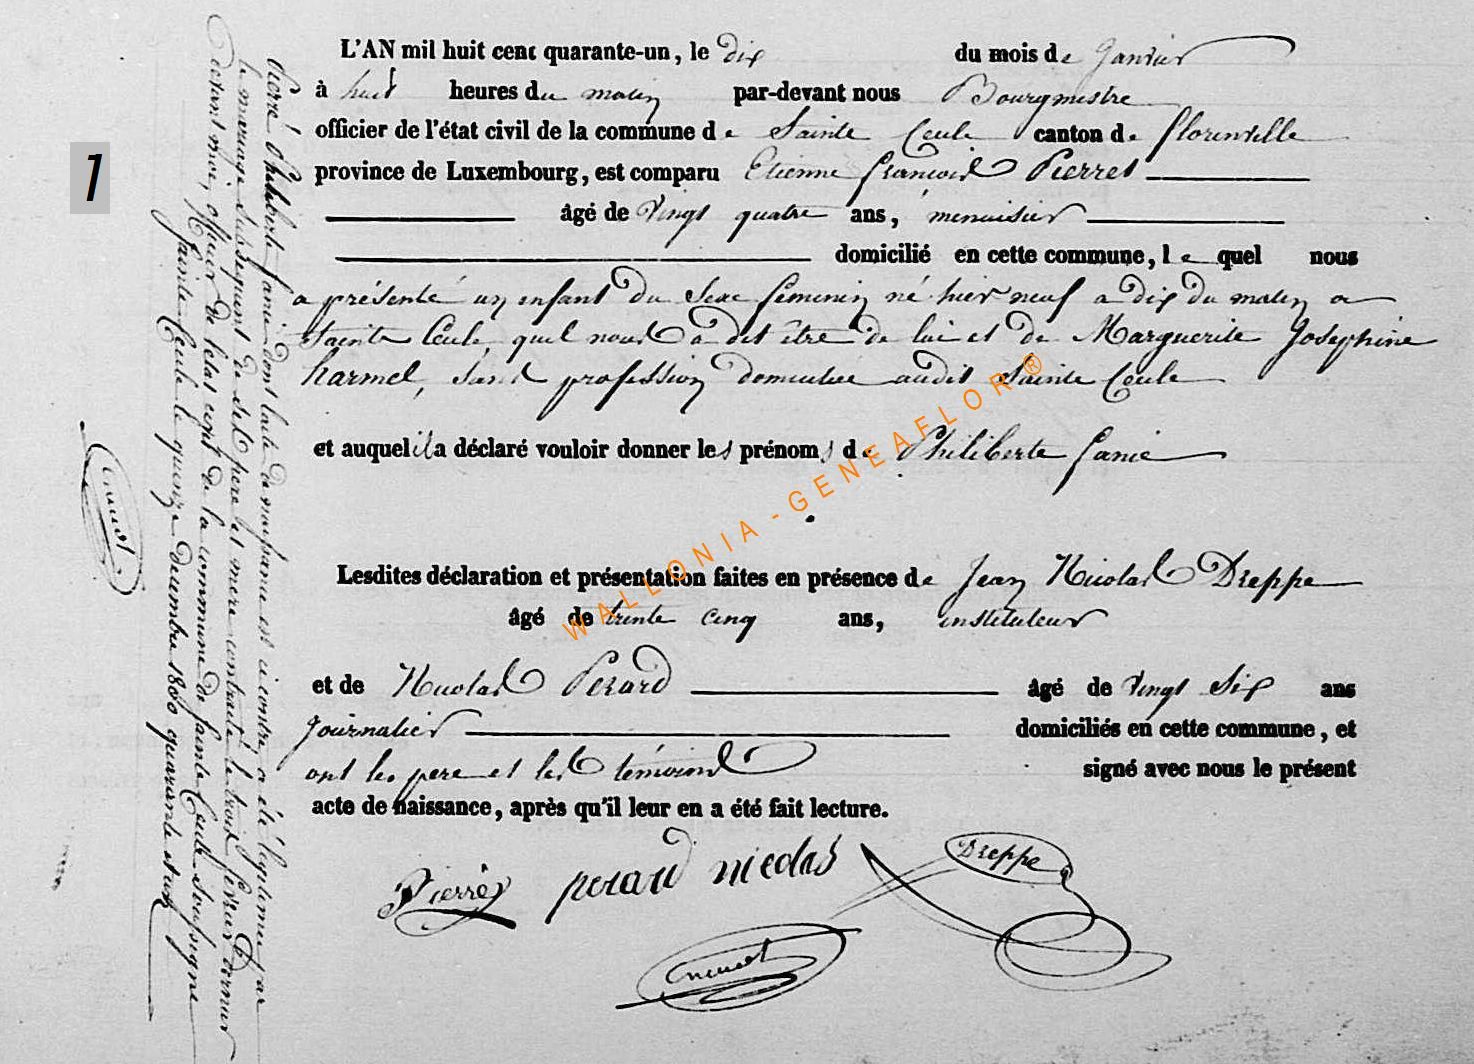 1
L'AN mil huit cent quarante-un, le dix du mois de Janvier
à huit heures du matin par-devant nous Bourgmestre
officier de l'état civil de la commune de Sainte Cecile canton de florenville
province de Luxembourg, est comparu Etienne françois Pierret
âgé de vingt quatre ans, menuisier
domicilié en cette commune, le quel nous
a présenté un enfant du sexe feminin né hier neuf a dix du matin a
Sainte Cecile quel nous a dit être de lui et de Marguerite Josephine
harmel, sans profession domiciliee audit Sainte Cecile
et auquel il a déclaré vouloir donner les prénoms de Philiberte fanie
Lesdites déclaration et présentation faites en présence de Jean Nicolas Dreppe
âgé de trente cinq ans, instituteur
et de Nicolas Perard âgé de vingt six ans
journalier domiciliés en cette commune, et
ont les pere et les témoins signé avec nous le présent
acte de naissance, après qu'il leur en a été fait lecture.
Pierret perard nicolas Dreppe
pierret philiberte fanie dont l'acte de naissance est ci contre a été légitimée par
le mariage subsequent de ses pere et mere contracté le trois fevrier dernier
devant moi, officier de l'etat civil de la commune de Sainte Cecile soussigné
Sainte Cecile le quinze decembre 1800 quarante et un
WALLONIA-GENEAFLOR®